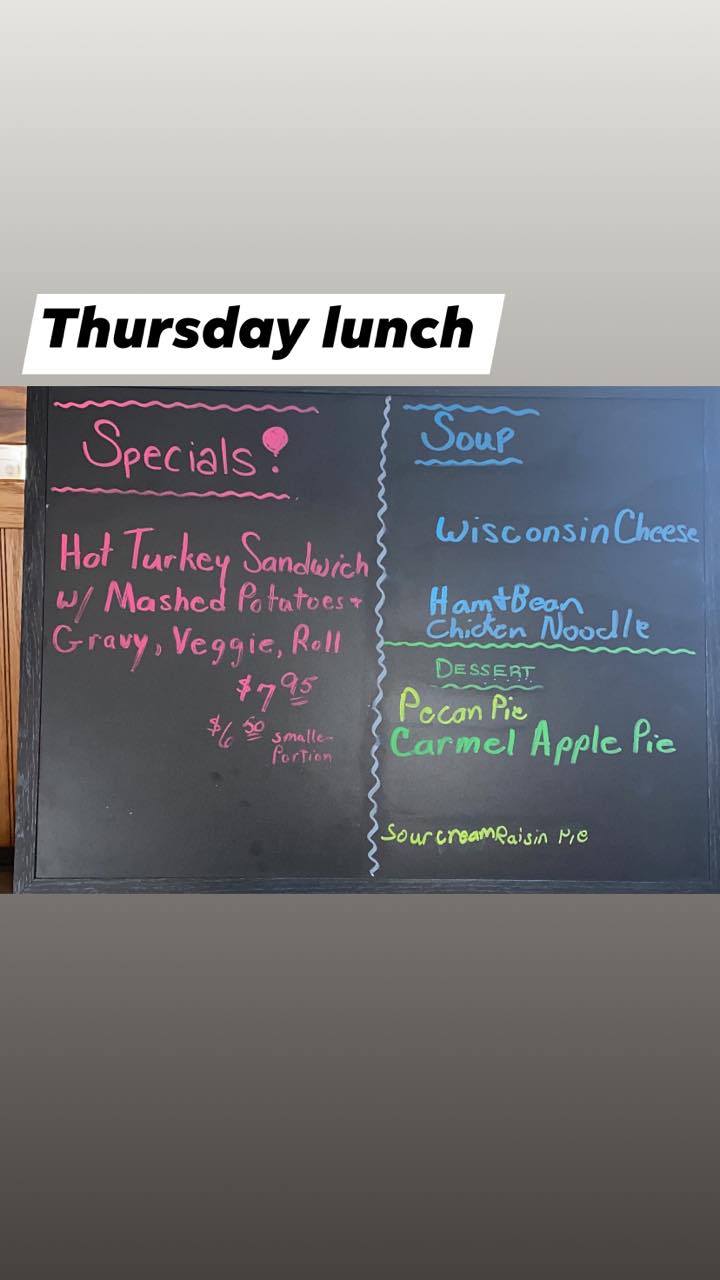 Thursday lunch
Specials!
Hot Turkey Sandwich
w/ Mashed Potatoes +
Gravy, Veggie, Roll
$7.95
$6.50 smaller
Portion
Soup
Wisconsin Cheese
Ham+Bean
Chicken Noodle
DESSERT
Pecan Pie
Carmel Apple Pie
Sour cream Raisin Pie